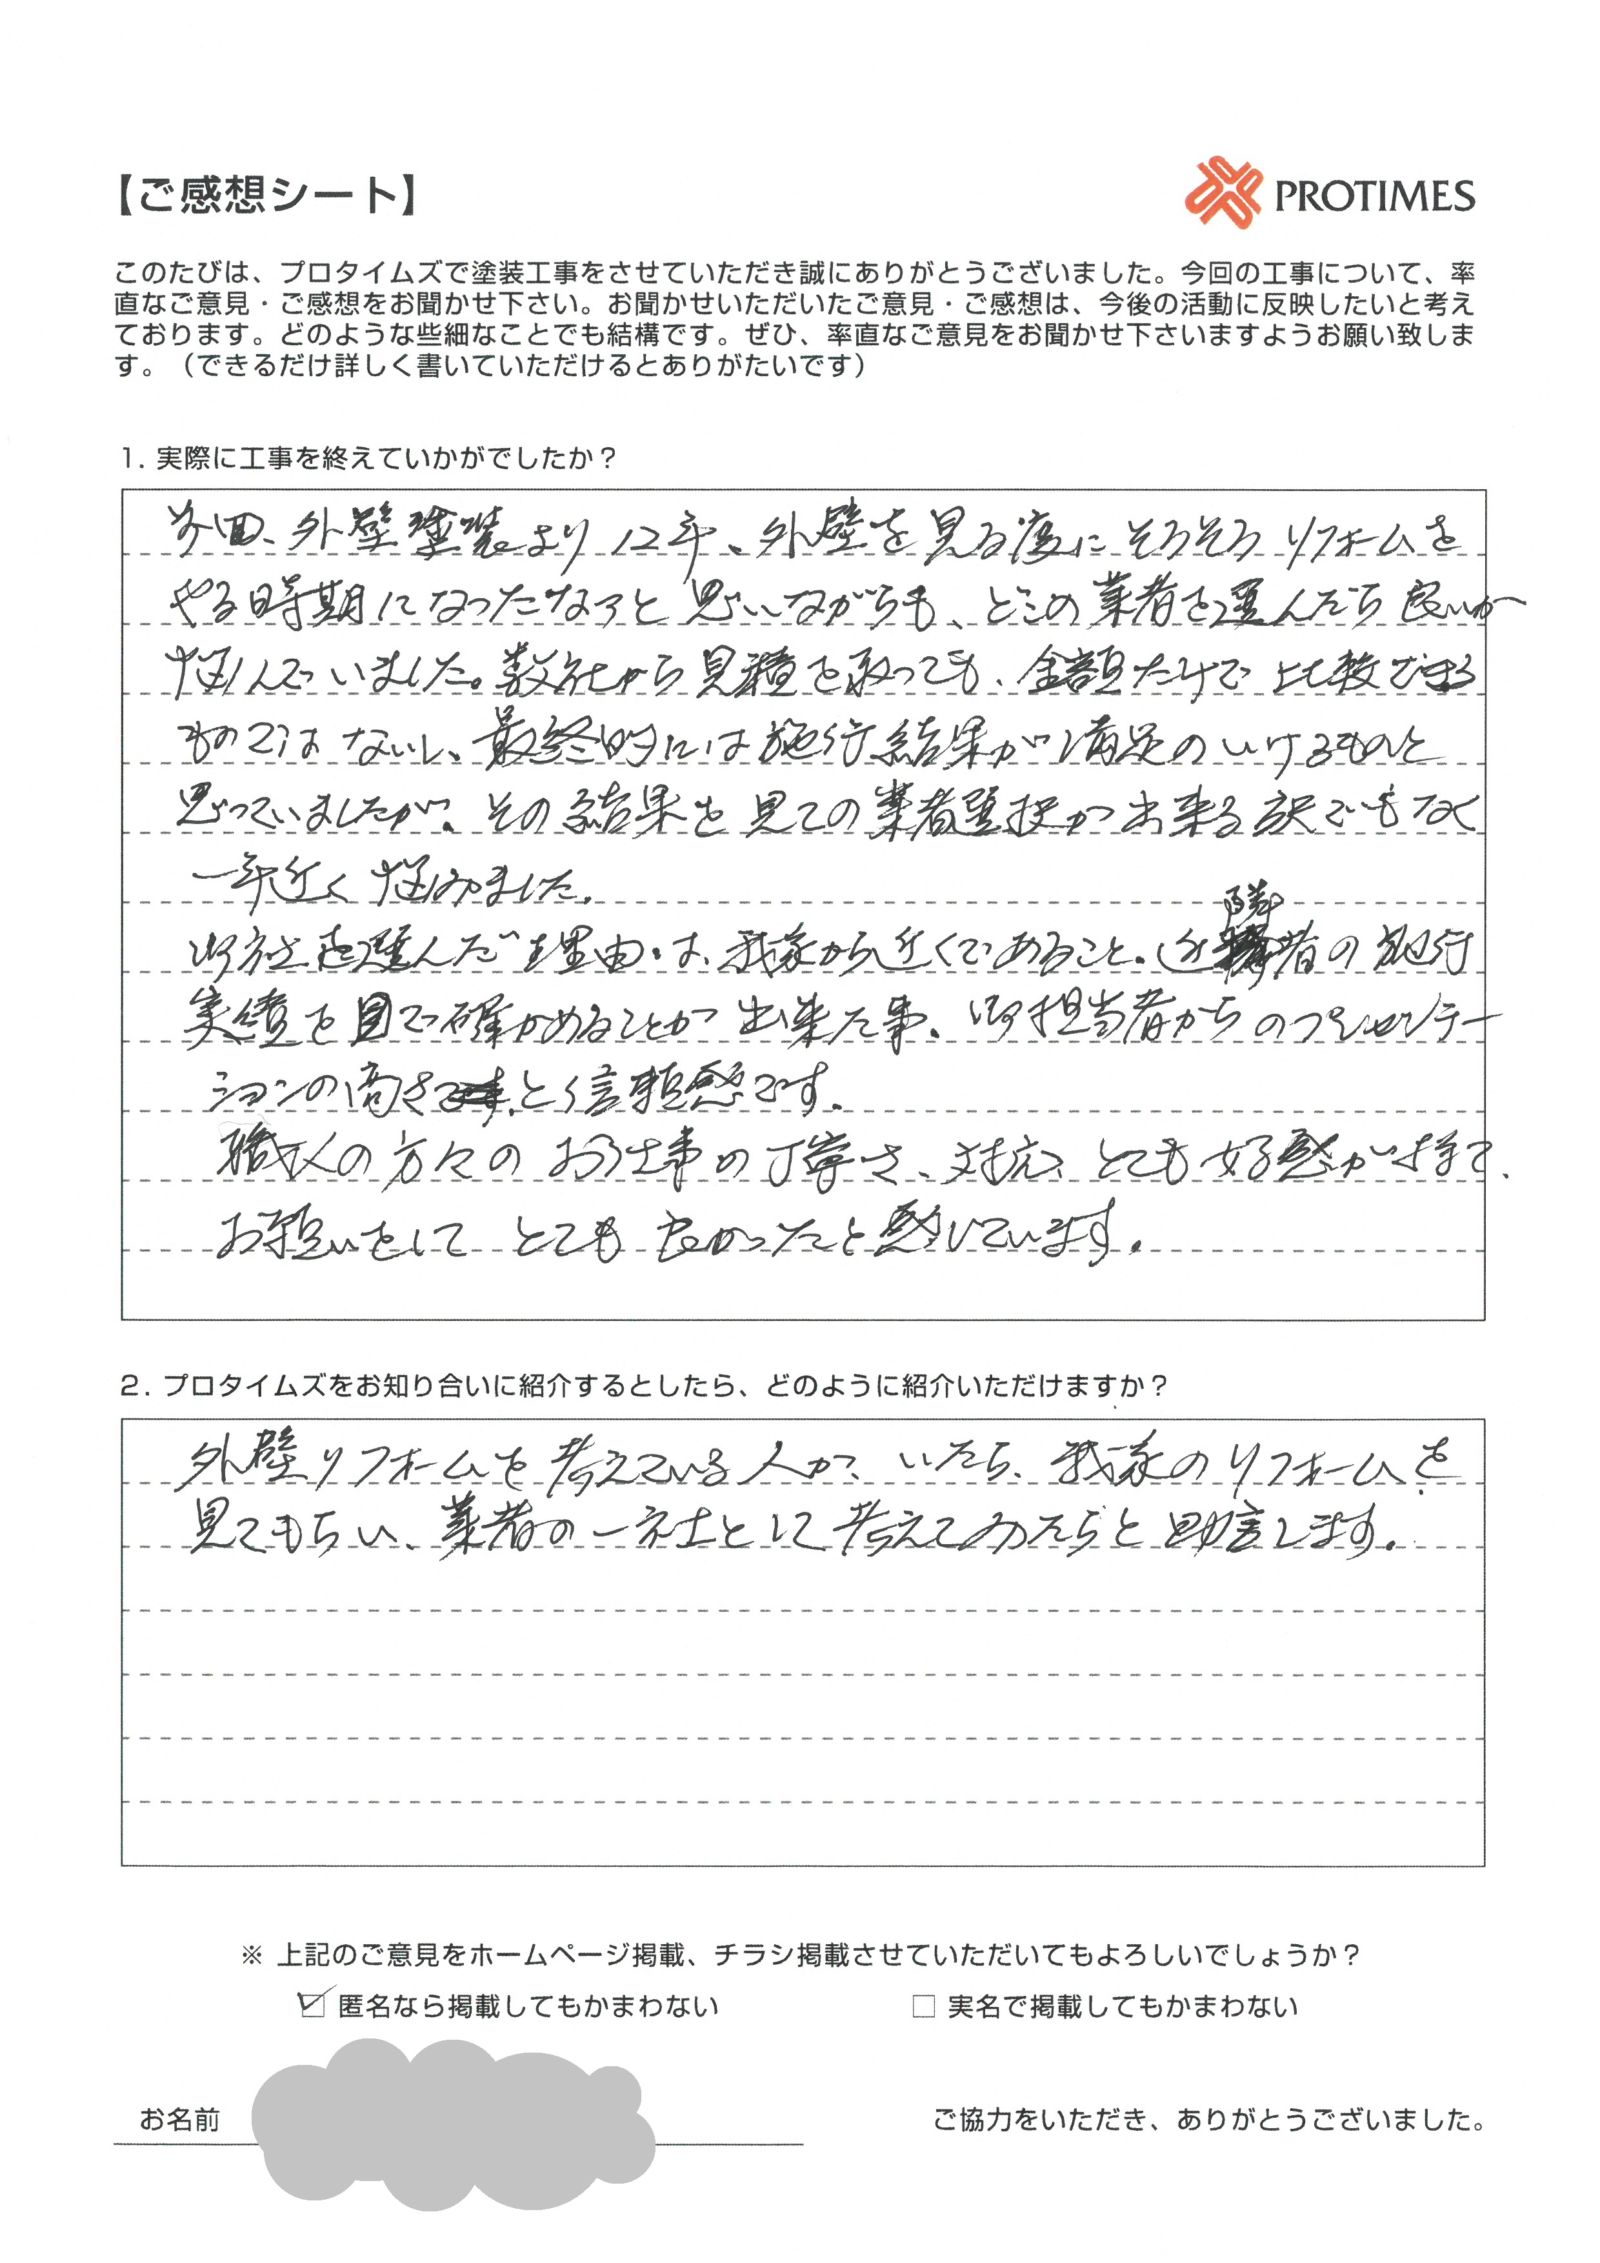 【ご感想シート】
PROTIMES
このたびは、プロタイムズで塗装工事をさせていただき誠にありがとうございました。今回の工事について、率
直なご意見・ご感想をお聞かせ下さい。お聞かせいただいたご意見・ご感想は、今後の活動に反映したいと考え
ております。どのような些細なことでも結構です。ぜひ、率直なご意見をお聞かせ下さいますようお願い致しま
す。（できるだけ詳しく書いていただけるとありがたいです）
1. 実際に工事を終えていかがでしたか？
前回、外壁塗装より12年、外壁を見る度にそろそろリフォームを
やる時期になったなアと思いながらも、どこの業者を選んだら良いか
悩んでいました。数社から見積を取っても、金額だけで比較できる
ものではないし、最終的には施行結果が満足のいけるものと
思っていましたが、その結果を見ての業者選択が出来る訳でもなく
一年近く悩みました。
御社を選んだ理由は、我家から近くであること、近隣者の施行
実績を目で確かめることが出来た事、御担当者からのプレゼンテー
ションの高さと信頼感です。
職人の方々のお仕事の丁寧さ、対応、とても好感が持て、
お願いをしてとても良かったと感じています。
2. プロタイムズをお知り合いに紹介するとしたら、どのように紹介いただけますか？
外壁リフォームを考えている人が、いたら、我家のリフォームを
見てもらい、業者の一社として考えてみたらと助言します。
※ 上記のご意見をホームページ掲載、チラシ掲載させていただいてもよろしいでしょうか？
☑ 匿名なら掲載してもかまわない
□ 実名で掲載してもかまわない
お名前
ご協力をいただき、ありがとうございました。